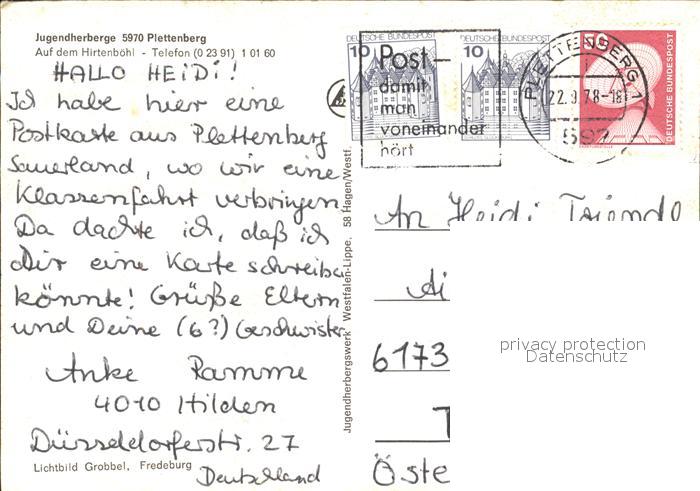 Jugendherberge 5970 Plettenberg
Auf dem Hirtenböhl - Telefon (0 23 91) 1 01 60
HALLO HEIDI!
Ich habe hier eine
Postkarte aus Plettenberg
Sauerland, wo wir eine
Klassenfahrt verbringen
Da dachte ich, daß ich
Dir eine Karte schreiben
könnte! Grüße Eltern
und Deine (6?) Geschwister
Anke Ramme
4010 Hilden
Düsseldorferstr. 27
Deutschland
Lichtbild Grobbel, Fredeburg
Jugendherbergswerk Westfalen-Lippe, 58 Hagen/Westf.
DEUTSCHE BUNDESPOST
10
DEUTSCHE BUNDESPOST
10
Post-
damit
man
voneinander
hört
PLETTENBERG 1
22.9.78-18
597
50
DEUTSCHE BUNDESPOST
An Heidi
6173
Öste
privacy protection
Datenschutz